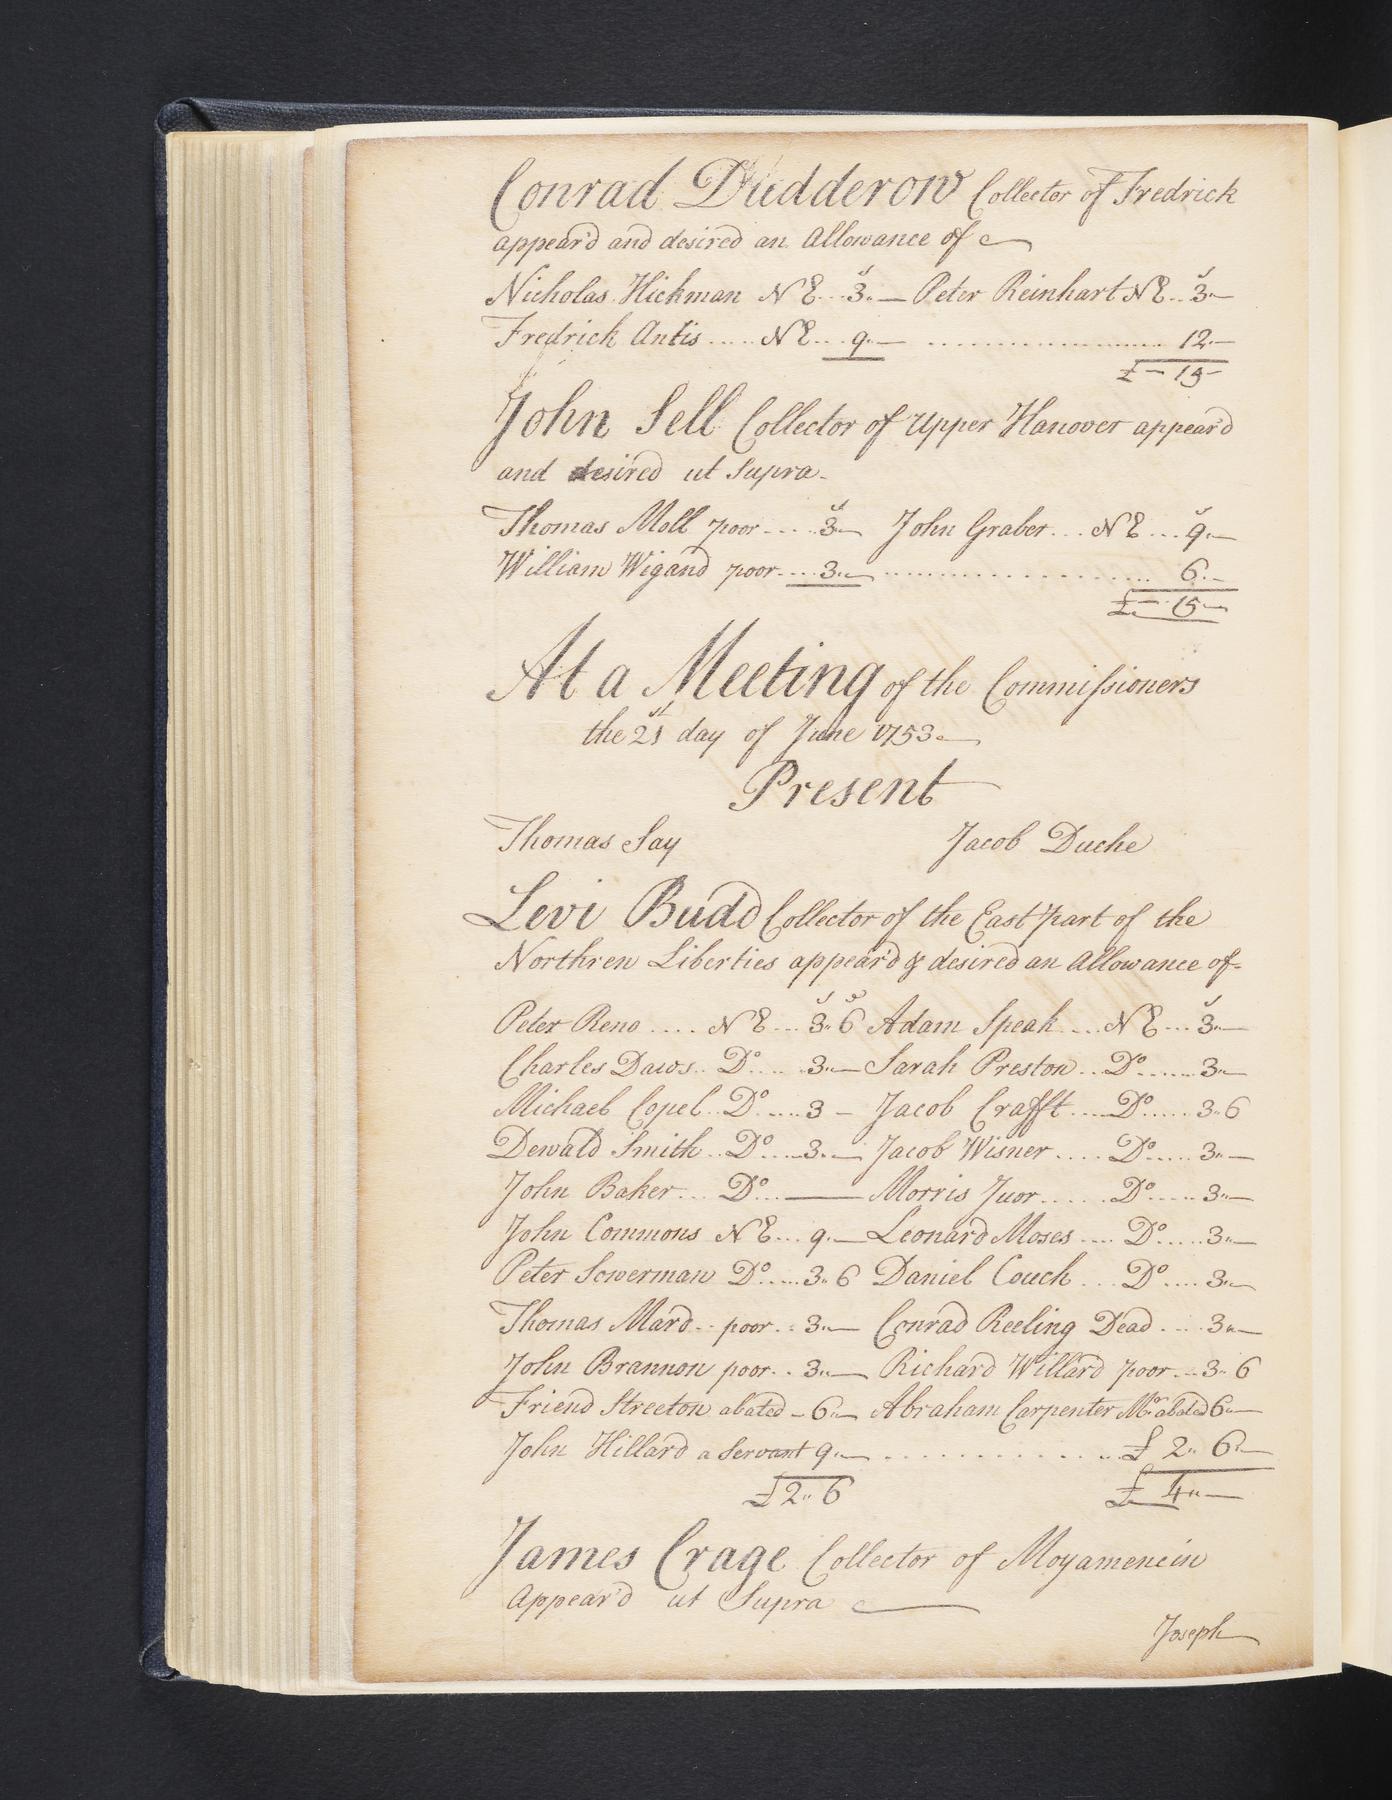 Conrad Dudderow Collector of Fredrick
appear'd and desired an Allowance of
Nicholas Hickman N E ... 3.. — Peter Reinhart N E .. 3.. —
Fredrick Antis ..... N E ... 9.. — .................. 12.. —
£ — 15 —
John Sell Collector of Upper Hanover appear'd
and desired ut Supra —
Thomas Moll poor .... 3.. — John Graber ... N E ... 9.. —
William Wigand poor .... 3.. — .................. 6.. —
£ — 15 —
At a Meeting of the Commissioners
the 21st day of June 1753. —
Present
Thomas Say Jacob Duche
Levi Budd Collector of the East part of the
Northren Liberties appear'd & desired an Allowance of =
Peter Reno .... N E ... 3.. 6 Adam Speak .... N E ... 3.. —
Charles Daws .. Do ..... 3.. — Sarah Preston .. Do ...... 3.. —
Michael Copel .. Do .... 3 — Jacob Crafft .... Do ..... 3.. 6
Dewald Smith .. Do .... 3.. — Jacob Wisner .... Do ..... 3.. —
John Baker ... Do ... — Morris Juor ...... Do ..... 3.. —
John Commons N E ... 9.. — Leonard Moses .... Do ..... 3.. —
Peter Sowerman Do .... 3.. 6 Daniel Couch ... Do .... 3.. —
Thomas Mard .. poor .. 3.. — Conrad Reeling Dead .... 3.. —
John Brannon poor .. 3.. — Richard Willard poor ... 3.. 6
Friend Streeton abated — 6.. — Abraham Carpenter Mr abated 6.. —
John Hillard a Servant 9.. — ............ £ 2.. 6.. —
£2.. 6 £ 4.. —
James Crage Collector of Moyamencin
Appear'd ut Supra —
Joseph